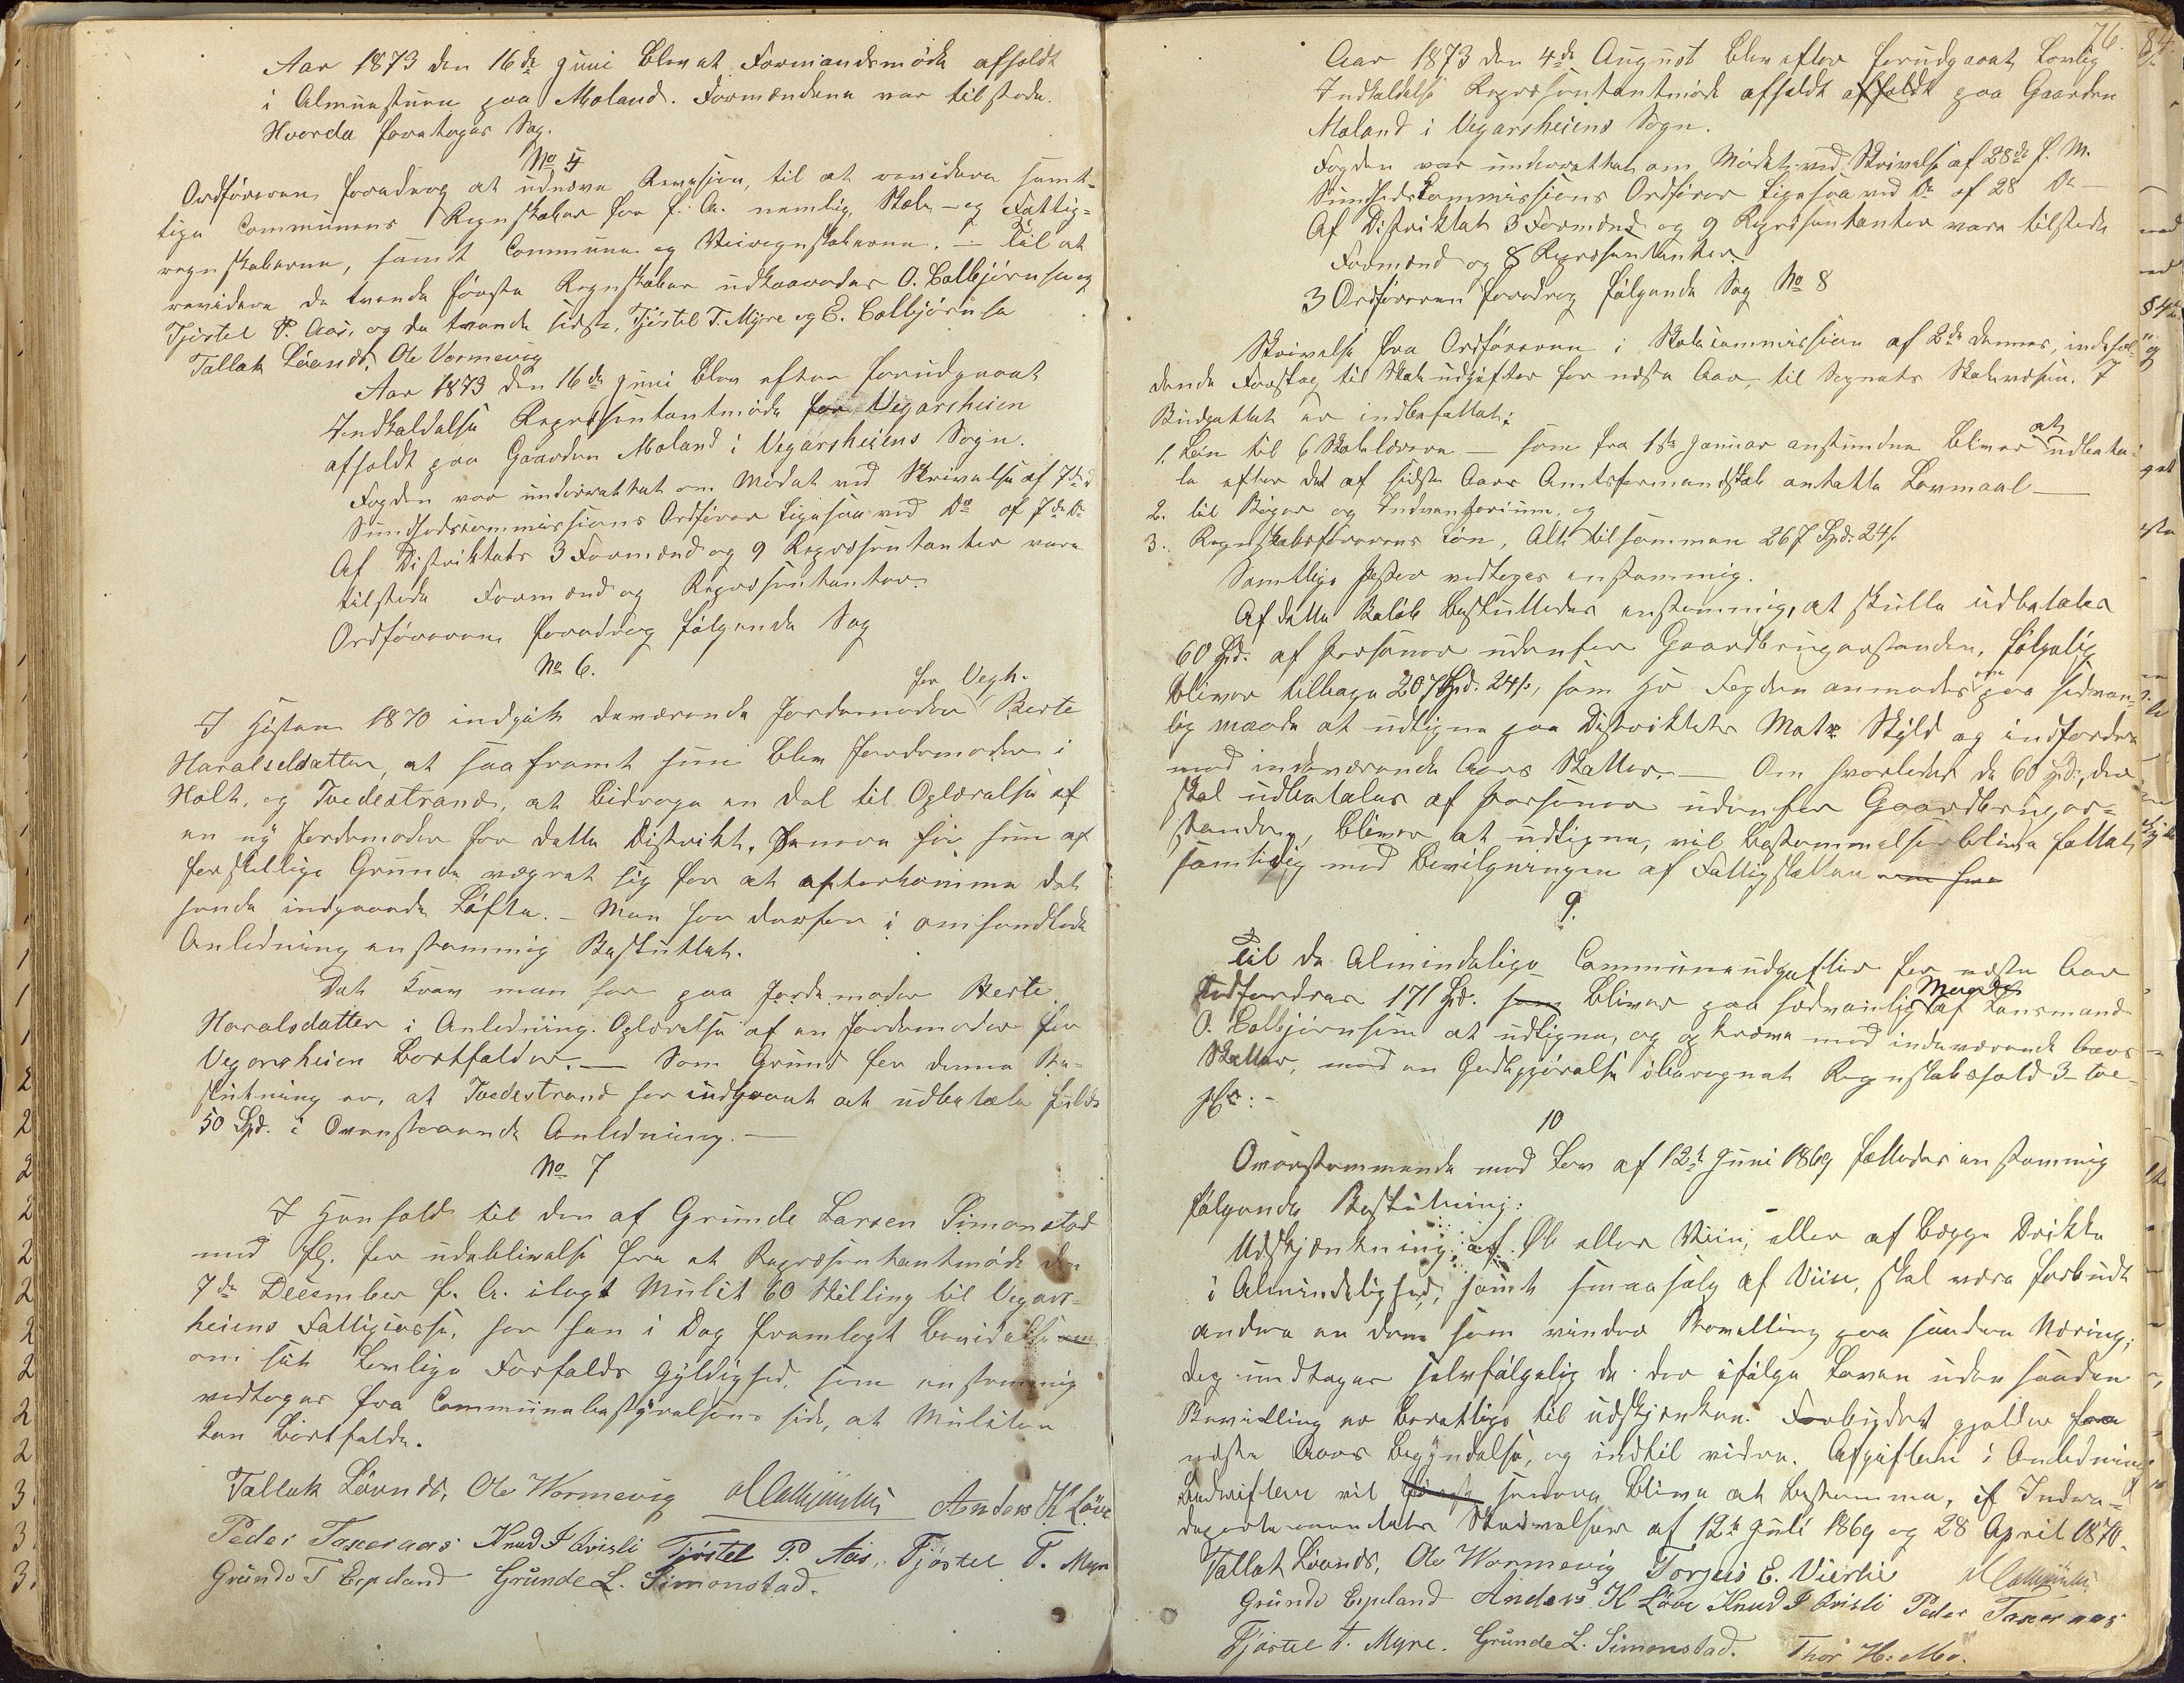 Aar 1873 den 16de Juni blev et Formandsmøde afholdt
i Almuestuen paa Moland. Formændene var tilstede.
Hvorda foretoges Sag.
No 5
Ordføreren foredrog at udnævne Revision, til at revidere samt-
lige Communens Regnskaber for f. A. nemlig, Skole- og Fattig-
regnskaberne, samt Commune og Veiregnskaberne. - Til at
revidere de tvende første Regnskaber udkaaredes O. Colbjørnsen og
Tjøstel P. Aas, og de tvende sidste, Tjøstel T. Myre og E. Colbjørnsen
Tallak Lövnds, Ole Vormevig
Aar 1873 den 16de Juni blev efter forudgaaet
Indkaldelse Repræsentantmøde for Vegarsheien
afholdt paa Gaarden Moland i Vegarsheiens Sogn.
Fogden var underrettet om Mødet ved Skrivelse af 7de d
Sundhedscommissions Ordfører ligesaa ved Do af 7de Do
Af Distriktets 3 Formænd og 9 Repræsentanter vare
tilstede Formænd og Repræsentanter.
Ordføreren foredrog følgende Sag
No 6.
for Vegh.
I Høsten 1870 indgik daværende Jordemoder Berte
Haralsdatter, at saafremt hun blev Jordemoder i
Holt, og Tvedestrand, at bidrage en Del til Oplærelse af
en ny Jordemoder for dette Distrikt, senere har hun af
forskjellige Grunde vægret sig for at efterkomme det
hende indgaaede Løfte. - Man har derfor i omhandlede
Anledning enstemmig Besluttet.
Det Krav man har paa Jordemoder Berte
Haralsdatter i Anledning Oplærelse af en Jordemoder for
Vegarsheien bortfalder. — Som Grund for denne Be-
slutning er, at Tvedestrand har indgaaet at udbetale fulde
50 Spd. i Ovenstaaende Anledning. —
No 7
I Henhold til den af Grunde Larsen Simonstad
med fl. for udeblivelse fra et Repræsentantmøde den
7de December f. A. ilagt Mulct 60 Skilling til Vegars-
heiens Fattigcasse, har han i Dag fremlagt Bevidelse
om sit lovlige Forfalds Gyldighed, som enstemmig
vedtoges fra Communebestyrelsens side, at Mulcten
kan bortfalde.
Tallak Lövnds, Ole Wormevig O Colbjørnsen Anders K Löve
Peder Taxeraas Knud J Qvisli Tjøstel P. Aas, Tjøstel T. Myre
Grunde T Espeland Grunde L. Simonstad.
76.
Aar 1873 den 4de August blev efter forudgaaet Lovlig
Indkaldelse Repræsentantmøde afholdt afholdt paa Gaarden
Moland i Vegarsheiens Sogn.
Fogden var underrettet om Mødet ved Skrivelse af 28de f. M.
Sundhedscommissions Ordfører ligesaa ved Do af 28 Do —
Af Distriktets 3 Formænd og 9 Repræsentanter vare tilstede
Formænd og 8 Repræsentanter
3 Ordføreren foredrog følgende Sag No 8
Skrivelse fra Ordføreren i Skolecommission af 2de dennes, indehol-
dende Forslag til Skoleudgifter for næste Aar, til Sognets Skolevæsen. I
Budgettet er indbefattet;
1. Løn til 6 Skolelærere - som fra 1ste Januar anstundende bliver at udbeta-
le efter det af sidste Aars Amtsformandskab antatte Lovmaal —
2. til Bøger og Indventarium, og
3. Regnskabsførerens Løn, Alt tilsammen 267 Spd. 24 s.
Samtlige Poster vedtoges enstemmig.
Af dette Beløb besluttedes enstemmig, at skulle udbetales
60 Spd. af Personer udenfor Gaardbrugerstanden, følgelig
bliver tilbage 207 Spd. 24 s, som Hr Fogden anmodes om paa sedvan-
lig maade at udligne paa Distriktets Matr Skyld og indfordre
med indeværende Aars Skatter. — Om hvorledes de 60 Spd, der
skal udbetales af Personer udenfor Gaardbruger-
standen, bliver at udligne, vil bestemmelse blive fattet
samtidig med Bevilgningen af Fattigskatten
9.
Til de Almindelige Communeudgifter for næste Aar
Udfordres 171 Spd. som bliver paa sedvanlig Maade af Lensmand
O. Colbjørnsen at udligne, og og kræve med indeværende Aars
Skatter, med en Godtgjørelse iberegnet Regnskabshold 3 - tre
pCt: -
10
Overstemmende med Lov af 12te Juni 1869 fattedes enstemmig
følgende Beslutning:
Udskjænkning af Øl eller Viin, eller af begge Drikke
i Almindelighed, samt smaasalg af Viin, skal være forbudt
andre en dem som vinder Bevilling paa saadan Næring;
dog undtages selvfølgelig de der ifølge Loven uden saadan
Bevilling er berettige til udskjænken. Forbudet gjælder fra
næste Aars begyndelse, og indtil videre. Afgiften i Anledning
Bedriften vil først senere blive at bestemme, jf Indre-
departementets Skrivelser af 12te Juli 1869 og 28 April 1870.
Tallak Lövnds, Ole Wormevig Torjus E. Vierlie O Colbjørnsen
Grunde Espeland Anders K Löve Knud J Qvisli Peder Taxeraas
Tjøstel T. Myre. Grunde L. Simonstad. Thor H. Mo.